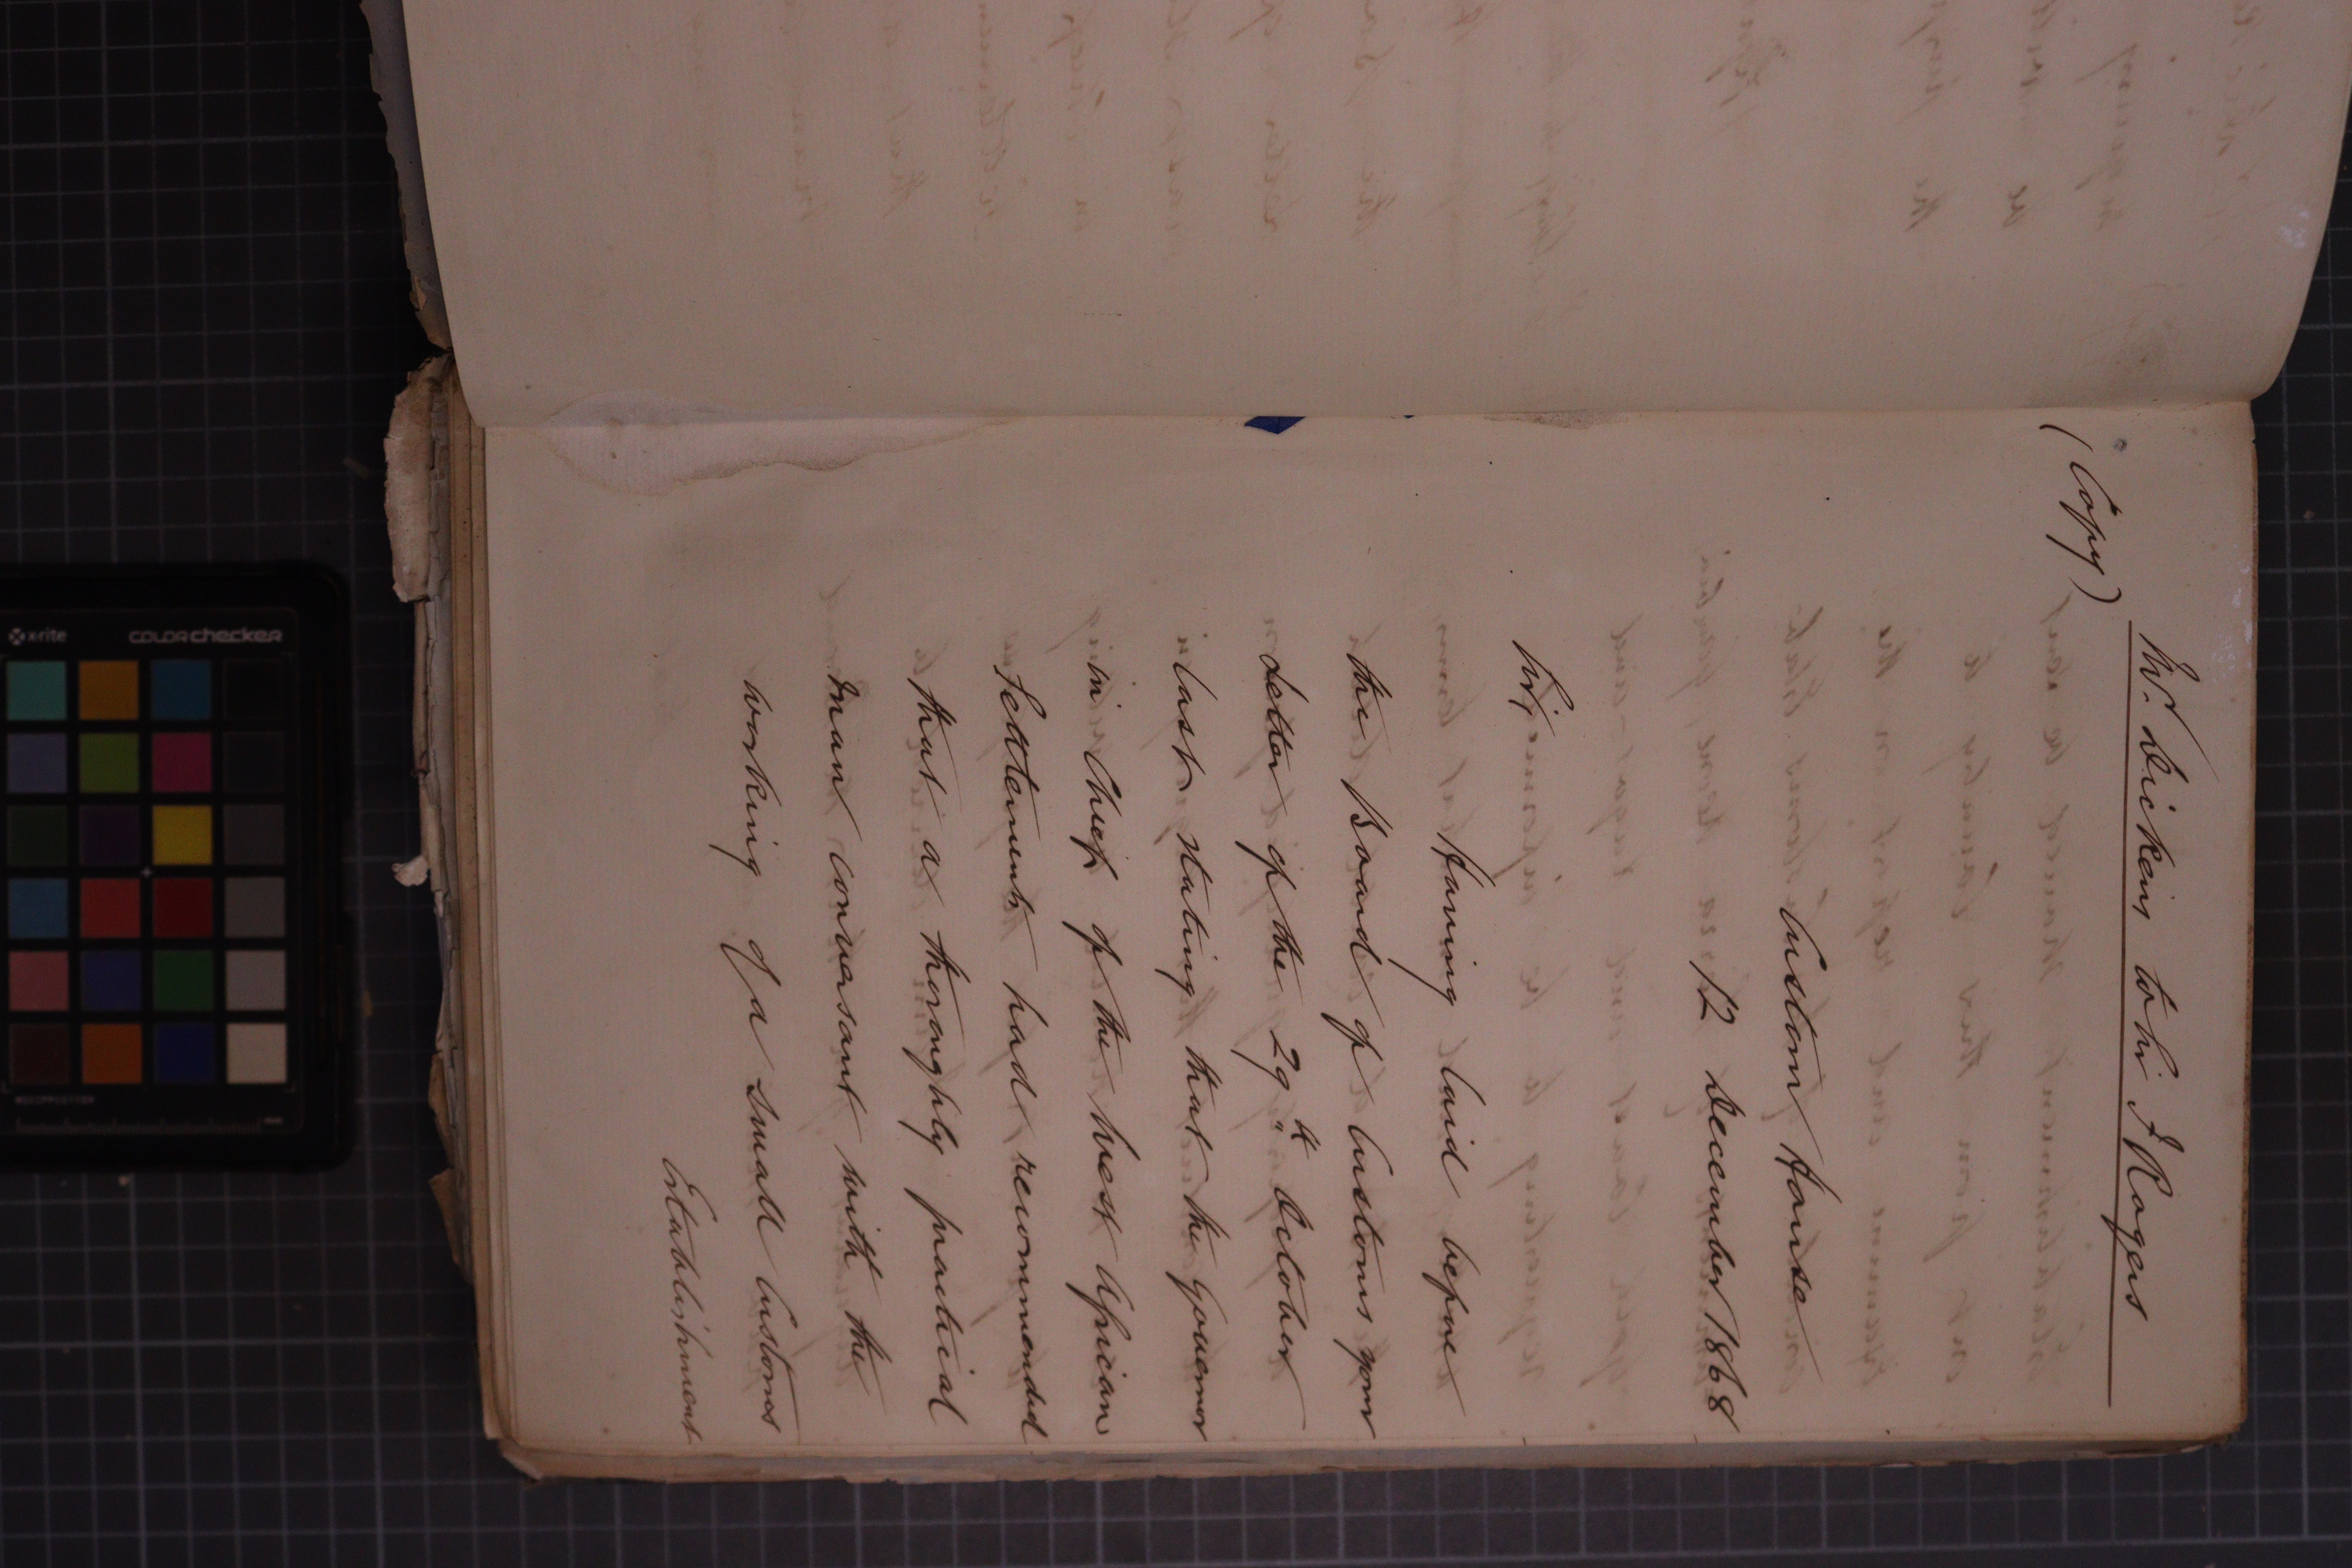 (Copy)
Mr. Dickins to Sir F Rogers
Custom House
12 December 1868
Sir,
Having laid before
the Board of Customs your
letter of the 29th October
last stating that the Governor
in Chief of the West African
Settlements had recommended
that a thoroughly practical
man conversant with the
working of a small Customs
Establishment
x-rite
colorchecker